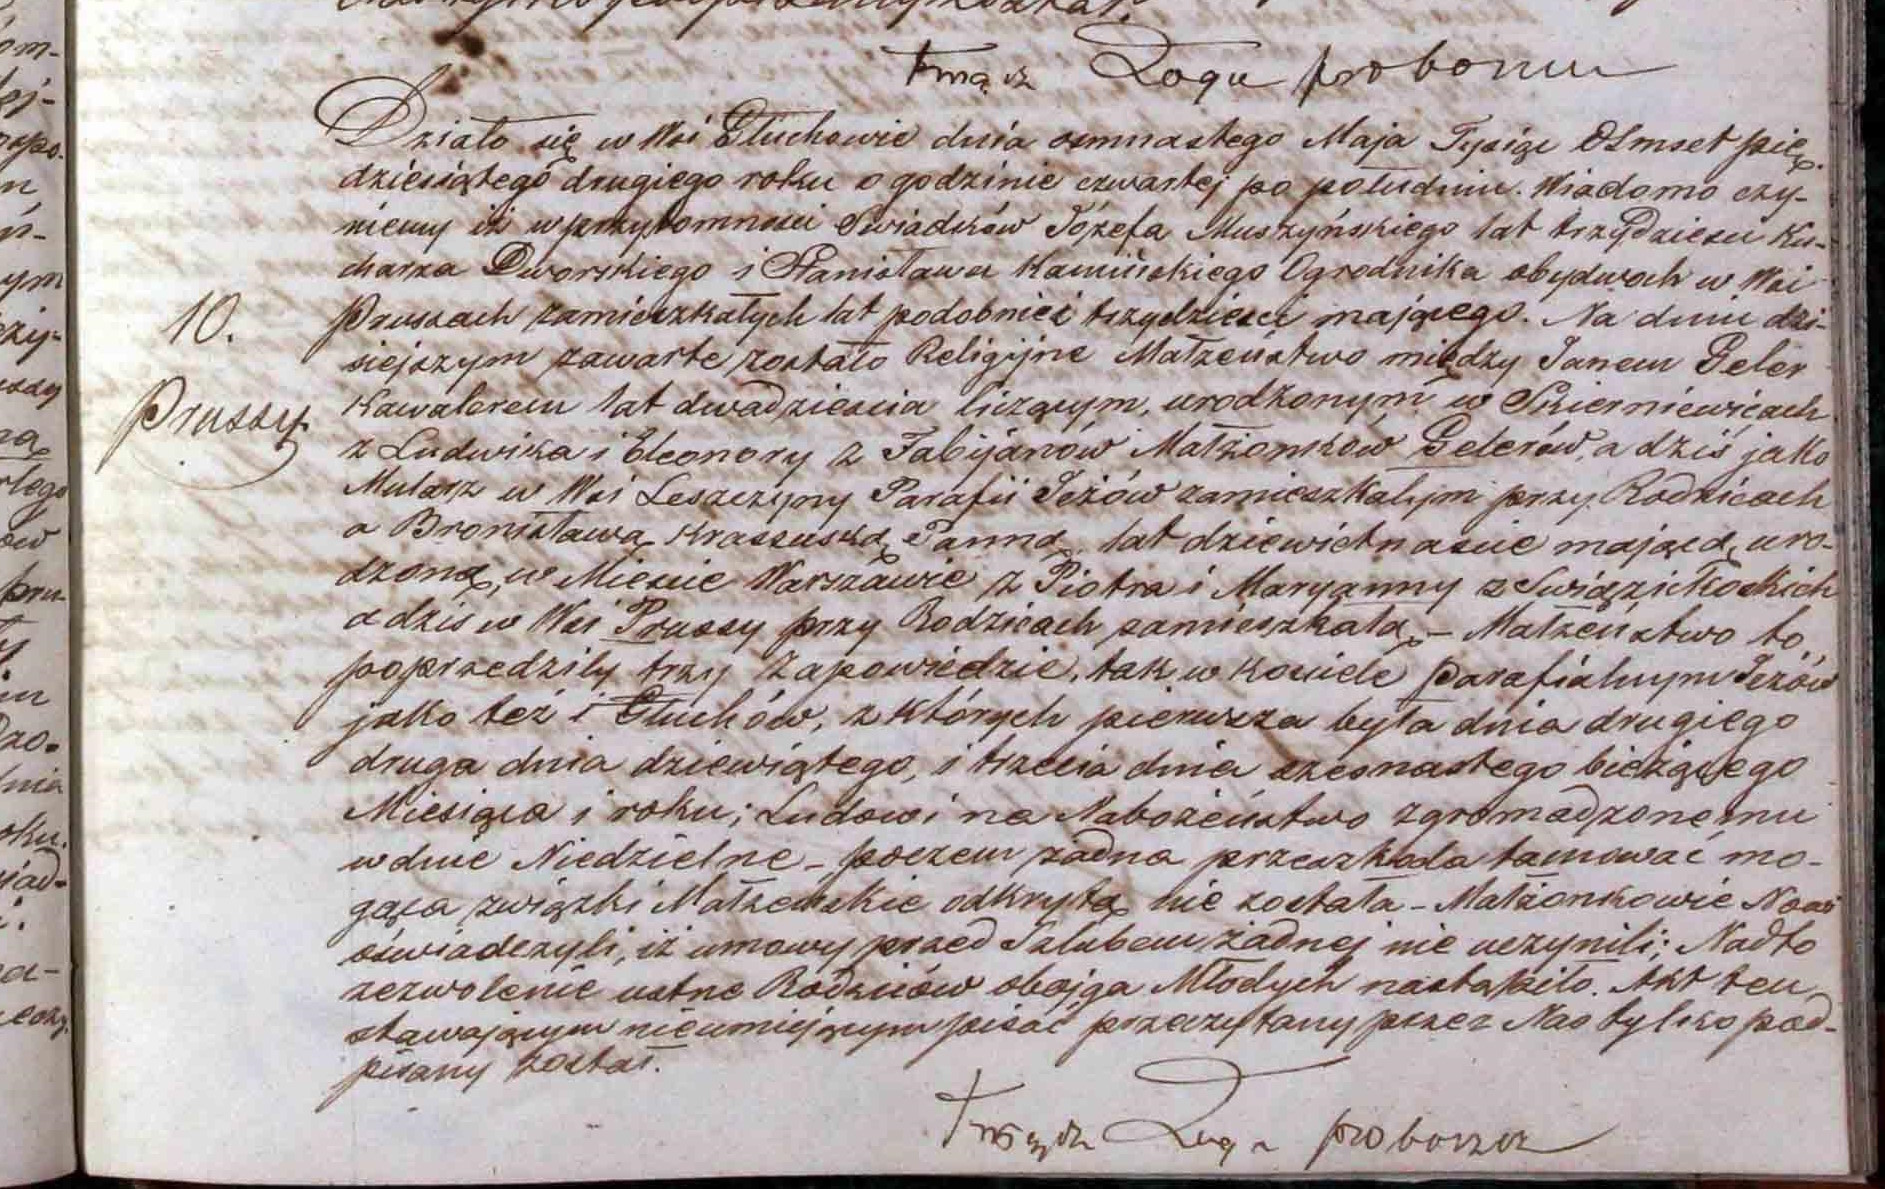 Xiądz Zoga proboszcz
Działo się w Wsi Głuchowie dnia osmnastego Maja Tysiąc Ośmset pię-
dziesiątego drugiego roku o godzinie czwartej po południu. Wiadomo czy-
niemy iż w przytomności Swiadków Józefa Muszyńskiego lat trzydzieści Ku-
charza Dworskiego i Stanisława Kamińskiego Ogrodnika obydwoch w Wsi
10. Prussach zamieszkałych lat podobnież trzydzieści mającego. Na dniu dzi-
siejszym zawarte zostało Religijne Małżeństwo między Janem Geler
Prussy. Kawalerem lat dwadzieścia liczącym, urodzonym w Skierniewicach
z Ludwika i Eleonory z Fabijanów Małżonków Gelerów, a dziś jako
Mularz w Wsi Leszczyny Parafii Jeżów zamieszkałym przy Rodzicach
a Bronisławą Krassuską Panną, lat dziewietnascie mającą, uro-
dzoną, w Miescie Warszawie z Piotra i Maryanny z
a dzis w Wsi Prussy przy Rodzicach zamieszkałą – Małżeństwo to
poprzedziły trzy Zapowiedzie, tak w kosciele Parafialnym Jeżów
jako też i Głuchów, z których pierwsza była dnia drugiego
druga dnia dziewiątego, i trzecia dnia szesnastego bieżącego
Miesiąca i roku; Ludowi na Nabożeństwo zgromadzonemu
w dnie Niedzielne – poczem żadna przeszkoda tamować mo-
gąca związki Małżeńskie odkrytą nie została – Małżonkowie Nowi
oświadczyli, iż umowy przed Szlubem żadnej nie uczynili; Nadto
zezwolenie ustne Rodziców obojga Młodych nastąpiło. Akt ten
stawającym nieumiejącym pisać przeczytany przez Nas tylko pod-
pisany został.
Xiądz Zoga proboszcz